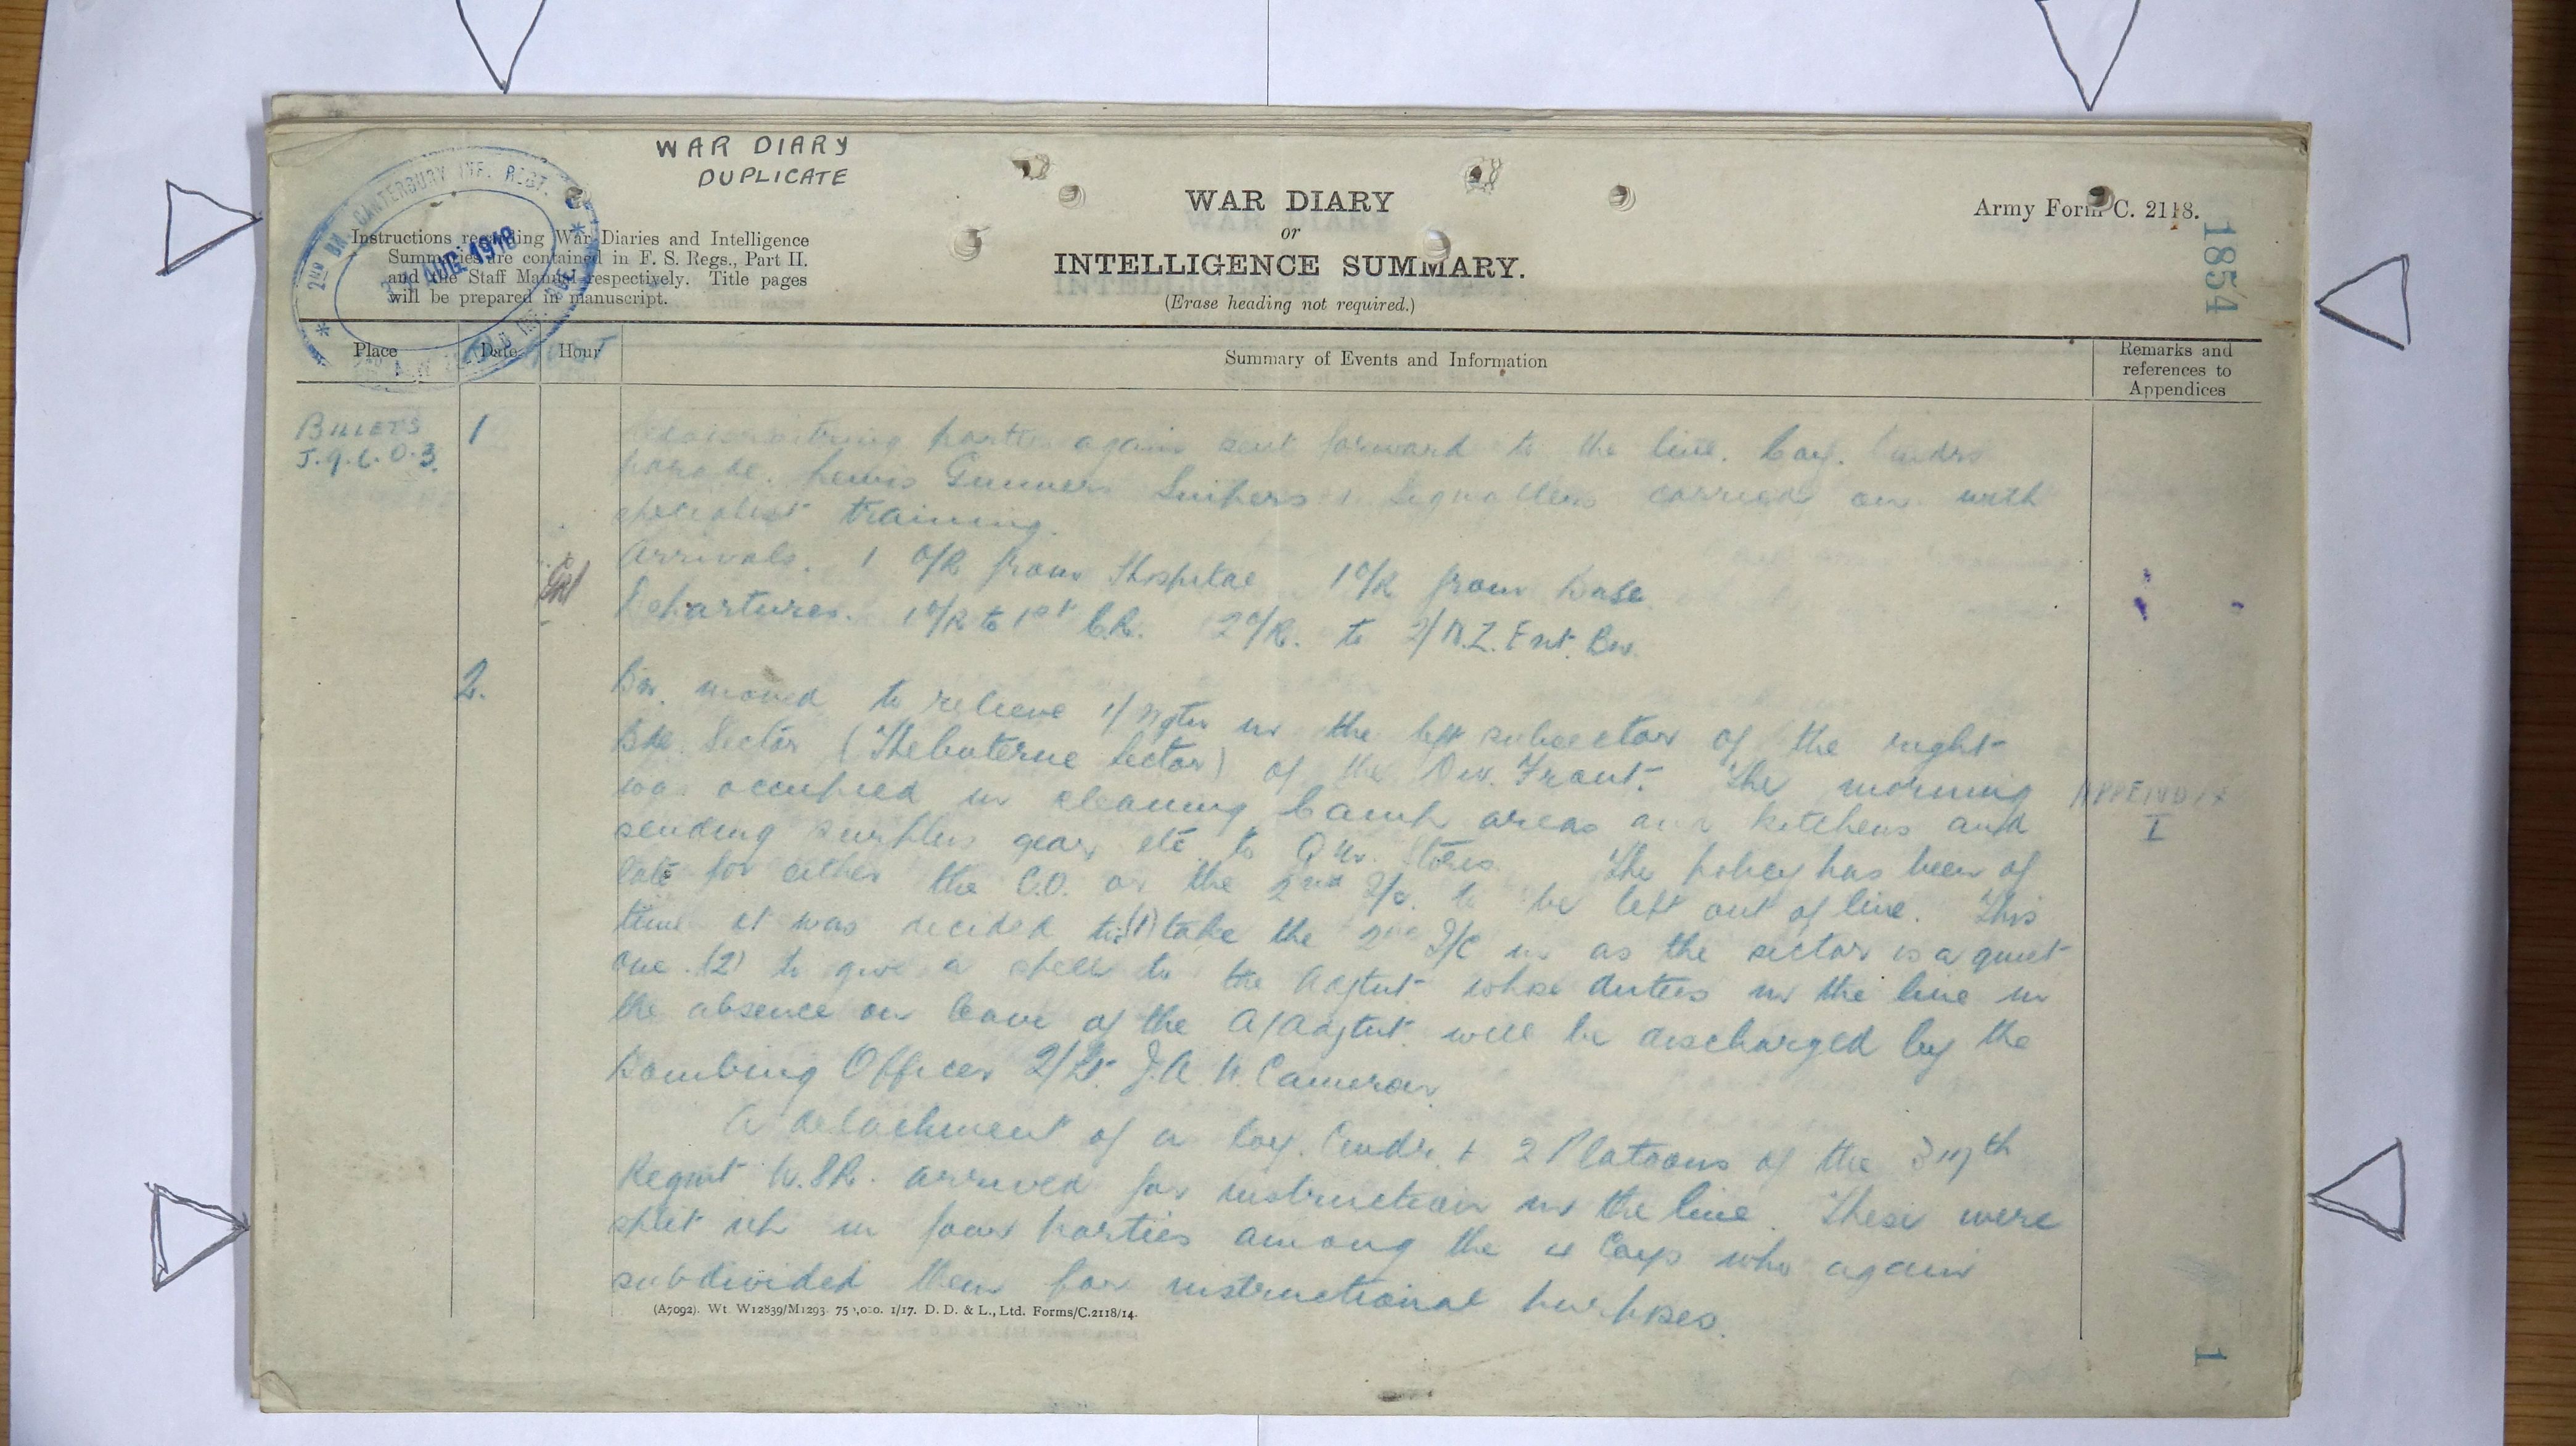 WAR DIARY
DUPLICATE
2ND BN. CANTERBURY INF. REGT.
AUG. 1918
Instructions regarding War Diaries and Intelligence
Summaries are contained in F. S. Regs., Part II.
and the Staff Manual respectively. Title pages
will be prepared in manuscript.
WAR DIARY
or
INTELLIGENCE SUMMARY.
(Erase heading not required.)
Army Form C. 2118.
1854
Place
Date
Hour
Summary of Events and Information
Remarks and
references to
Appendices
BILLETS
J.9.6.0.3.
1
Reconnoitring parties again sent forward to the line. Coy. Cmdrs
parade. Lewis Gunners Snipers & Signallers carried on with
specialist training.
Arrivals. 1 O/R from Hospital 1 O/R from Base
Departures. 1 O/R to 1st C.R. 2 O/R. to 2/N.Z. Ent. Bn.
2.
Bn. moved to relieve 1/ Wgtn in the left subsector of the right
Bde. Sector (Hebuterne Sector) of the Div. Front. The morning
was occupied in cleaning Camp areas and kitchens and
sending surplus gear etc to Q.Mr. Stores. The policy has been of
late for either the C.O. or the 2nd I/C. to be left out of line. This
time it was decided to (1) take the 2nd I/C in as the sector is a quiet
one. (2) to give a spell to the Adjtut. whose duties in the line in
the absence on leave of the A/Adjtut. will be discharged by the
Bombing Officer 2/Lt. J.A. Cameron.
A detachment of a Coy. Cmdr. + 2 Platoons of the 317th
Regmt U.S.A. arrived for instruction in the line. These were
split up in four parties among the 4 Coys who again
subdivided them for instructional purposes.
APPENDIX
I
(A7092). Wt. W12839/M1293. 75 ,000. 1/17. D. D. & L., Ltd. Forms/C.2118/14.
1